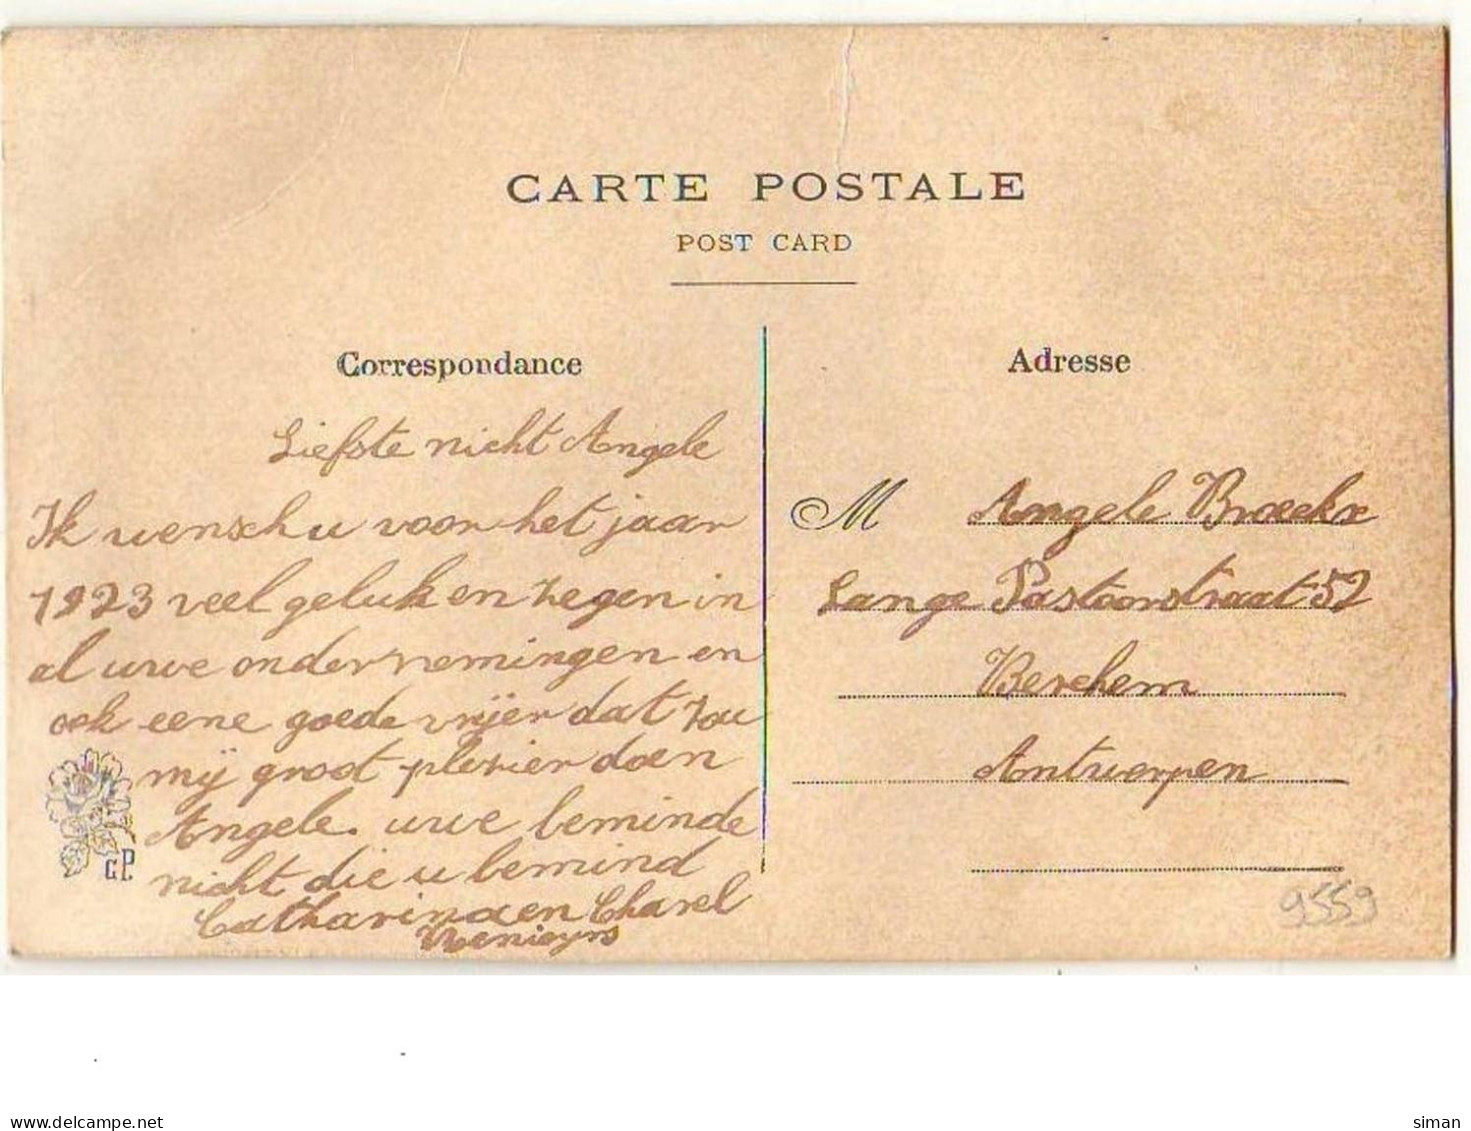 CARTE POSTALE
POST CARD
Correspondance
Liefste nicht Angele
Ik wensch u voor het jaar
1923 veel geluk en zegen in
al uwe ondernemingen en
ook eene goede vrijer dat zou
mij groot plezier doen
Angele. uwe beminde
nicht die u bemind
Catharina en Charel
Adresse
M Angele Broeckx
Lange Pastoorstraat 52
Berchem
Antwerpen
GP
9559
delcampe.net
siman